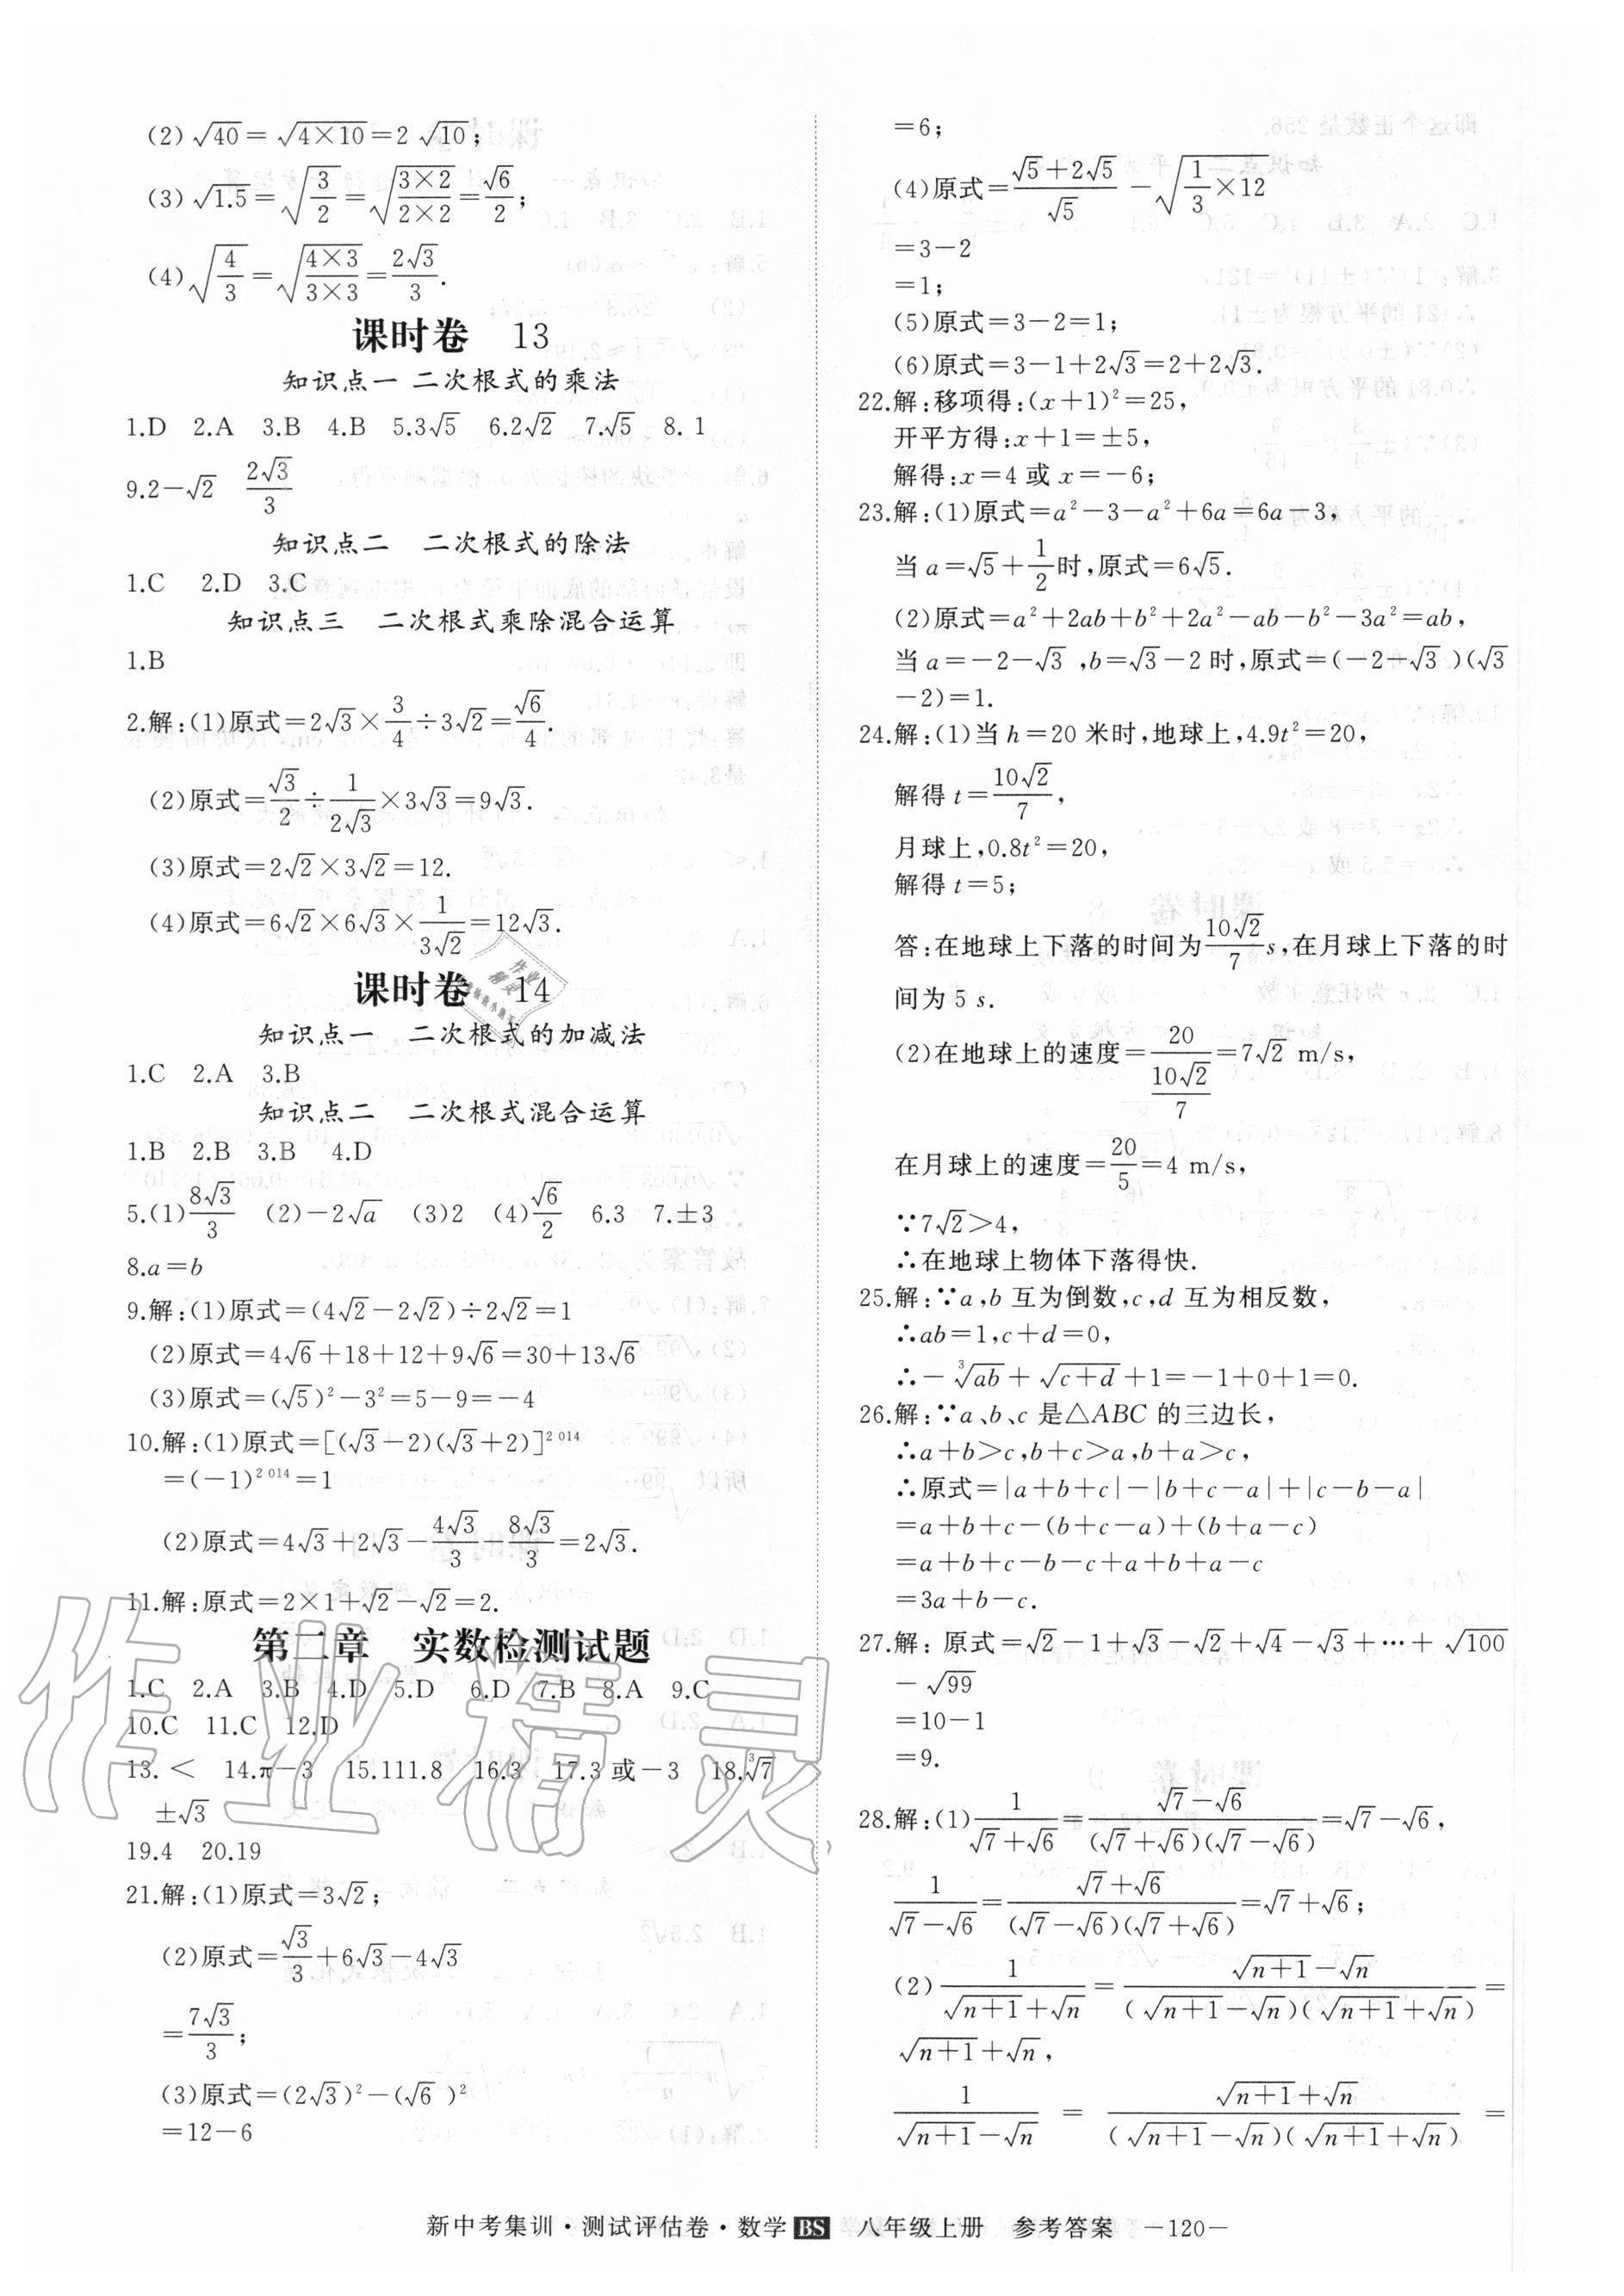 (2)√40=√(4×10)=2√10;
(3)√1.5=√(3/2)=√((3×2)/(2×2))=√6/2;
(4)√(4/3)=√((4×3)/(3×3))=2√3/3.
课时卷 13
知识点一 二次根式的乘法
1.D 2.A 3.B 4.B 5.3√5 6.2√2 7.√5 8.1
9.2-√2 2√3/3
知识点二 二次根式的除法
1.C 2.D 3.C
知识点三 二次根式乘除混合运算
1.B
2.解:(1)原式=2√3×3/4÷3√2=√6/4.
(2)原式=√3/2÷1/(2√3)×3√3=9√3.
(3)原式=2√2×3√2=12.
(4)原式=6√2×6√3×1/(3√2)=12√3.
课时卷 14
知识点一 二次根式的加减法
1.C 2.A 3.B
知识点二 二次根式混合运算
1.B 2.B 3.B 4.D
5.(1)8√3/3 (2)-2√a (3)2 (4)√6/2 6.3 7.±3
8.a=b
9.解:(1)原式=(4√2-2√2)÷2√2=1
(2)原式=4√6+18+12+9√6=30+13√6
(3)原式=(√5)²-3²=5-9=-4
10.解:(1)原式=[(√3-2)(√3+2)]²⁰¹⁴
=(-1)²⁰¹⁴=1
(2)原式=4√3+2√3-4√3/3-8√3/3=2√3.
11.解:原式=2×1+√2-√2=2.
第二章 实数检测试题
1.C 2.A 3.B 4.D 5.D 6.D 7.B 8.A 9.C
10.C 11.C 12.D
13.< 14.π-3 15.111.8 16.3 17.3或-3 18.∛7
±√3
19.4 20.19
21.解:(1)原式=3√2;
(2)原式=√3/3+6√3-4√3
=7√3/3;
(3)原式=(2√3)²-(√6)²
=12-6
=6;
(4)原式=(√5+2√5)/√5-√(1/3×12)
=3-2
=1;
(5)原式=3-2=1;
(6)原式=3-1+2√3=2+2√3.
22.解:移项得:(x+1)²=25,
开平方得:x+1=±5,
解得:x=4或x=-6;
23.解:(1)原式=a²-3-a²+6a=6a-3,
当a=√5+1/2时,原式=6√5.
(2)原式=a²+2ab+b²+2a²-ab-b²-3a²=ab,
当a=-2-√3,b=√3-2时,原式=(-2-√3)(√3
-2)=1.
24.解:(1)当h=20米时,地球上,4.9t²=20,
解得t=10√2/7,
月球上,0.8t²=20,
解得t=5;
答:在地球上下落的时间为10√2/7 s,在月球上下落的时
间为5 s.
(2)在地球上的速度=20/(10√2/7)=7√2 m/s,
在月球上的速度=20/5=4 m/s,
∵7√2>4,
∴在地球上物体下落得快.
25.解:∵a,b互为倒数,c,d互为相反数,
∴ab=1,c+d=0,
∴-∛(ab)+√(c+d)+1=-1+0+1=0.
26.解:∵a、b、c是△ABC的三边长,
∴a+b>c,b+c>a,b+a>c,
∴原式=|a+b+c|-|b+c-a|+|c-b-a|
=a+b+c-(b+c-a)+(b+a-c)
=a+b+c-b-c+a+b+a-c
=3a+b-c.
27.解:原式=√2-1+√3-√2+√4-√3+…+√100
-√99
=10-1
=9.
28.解:(1)1/(√7+√6)=(√7-√6)/((√7+√6)(√7-√6))=√7-√6,
1/(√7-√6)=(√7+√6)/((√7-√6)(√7+√6))=√7+√6;
(2)1/(√(n+1)+√n)=(√(n+1)-√n)/((√(n+1)-√n)(√(n+1)+√n))=
√(n+1)+√n,
1/(√(n+1)-√n)=(√(n+1)+√n)/((√(n+1)-√n)(√(n+1)+√n))=
新中考集训·测试评估卷·数学 BS 八年级上册 参考答案 -120-
作业精灵